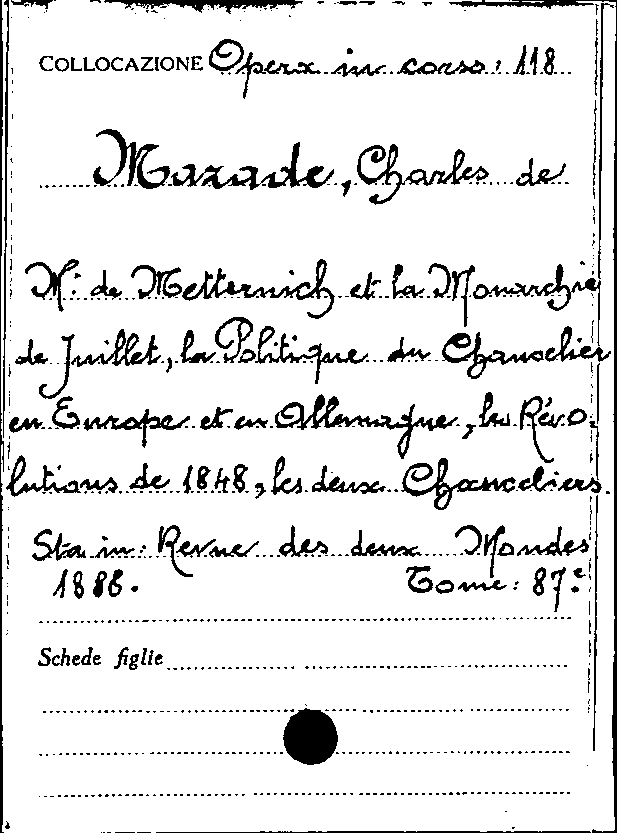 COLLOCAZIONE Opera in corso: 118
Mazade, Charles de
Mr: de Metternich et la Monarchie
de Juillet, la Politique du Chancelier
en Europe et en Allemagne, les Révo-
lutions de 1848, les deux Chanceliers.
Sta in: Revue des deux Mondes
1886. Tome: 87e
Schede figlie